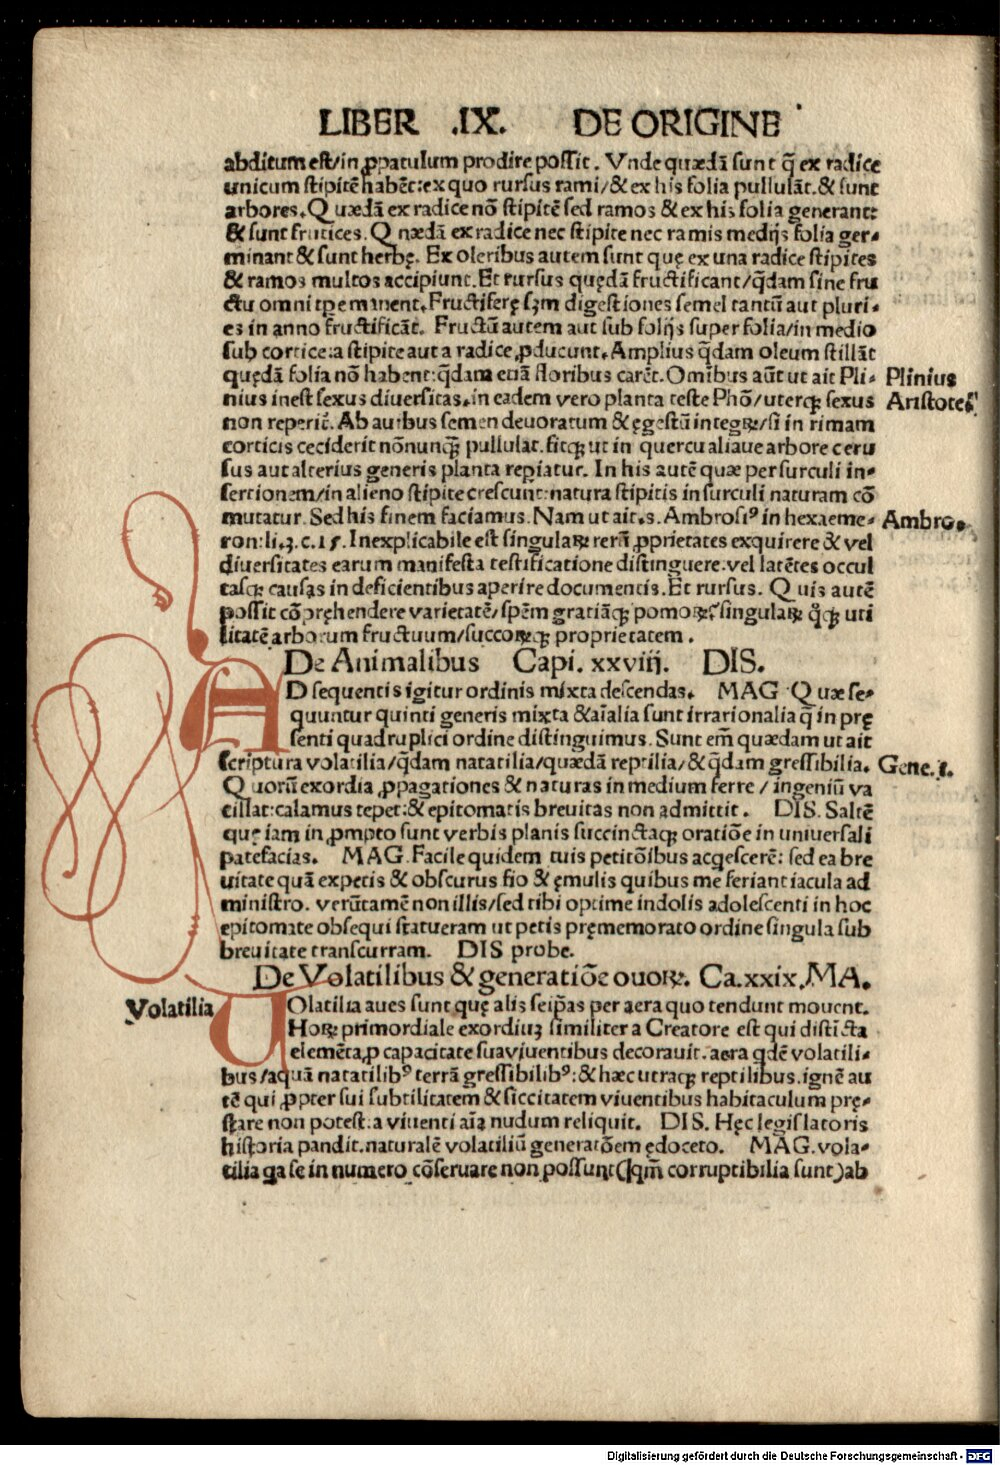 LIBER .IX. DE ORIGINE
abditum est/in ꝓpatulum prodire possit. Vnde quædā sunt q̄ ex radice
unicum stipitē habēt: ex quo rursus rami/& ex his folia pullulāt. & sunt
arbores. Quædā ex radice nō stipitē sed ramos & ex his folia generant:
& sunt frutices. Q næda ex radice nec stipite nec ramis medijs folia ger-
minant & sunt herbę. Ex oleribus autem sunt quę ex una radice stipites
& ramos multos accipiunt. Et rursus quędā fructificant/q̄dam sine fru
ctu omni tꝑe manent. Fructiferę sꝫm digestiones semel tantū aut pluri-
es in anno fructificāt. Fructū autem aut sub folijs super folia/in medio
sub cortice: a stipite aut a radice ꝓducunt. Amplius q̄dam oleum stillāt
quędā folia nō habent: q̄dam etiā floribus carēt. Omībus aūt ut ait Pli- Plinius
nius inest sexus diuersitas. in eadem vero planta teste Phō/uterqꝫ sexus Aristotes
non reperit̄. Ab auibus semen deuoratum & ęgestū integꝝ/si in rimam
corticis ceciderit nōnunqꝫ̄ pullulat. fitqꝫ ut in quercu aliaue arbore ceru
sus aut alterius generis planta repiatur. In his autē quæ per surculi in-
sertionem/in alieno stipite crescunt: natura stipitis in surculi naturam cō
mutatur. Sed his finem faciamus. Nam ut ait .s. Ambrosiꝰ in hexaeme- Ambro.
ron: li.3. c. 15. Inexplicabile est singulaꝝ rerū ꝓprietates exquirere & vel
diuersitates earum manifesta testificatione distinguere. vel latētes occul
tasqꝫ causas in deficientibus aperire documentis. Et rursus. Quis autē
possit cōpręhendere varietatē/spēm gratiāqꝫ pomoꝝ? singulaꝝ q̄qꝫ uti
litatē arborum fructuum/succoꝝqꝫ proprietatem.
De Animalibus Capi. xxviij. DIS.
AD sequentis igitur ordinis mixta descendas. MAG Quæ se-
quuntur quinti generis mixta & aīalia sunt irrarionalia q̄ in prę
senti quadruplici ordine distinguimus. Sunt em̄ quædam ut ait
scriptura volatilia/q̄dam natatilia/quædā reptilia/& q̄dam gressibilia. Gene.1.
Quorū exordia ꝓpagationes & naturas in medium ferre/ingeniū va
cillat: calamus tepet: & epitomatis breuitas non admittit. DIS. Saltē
quę iam in ꝓmpto sunt verbis planis succinctaqꝫ oratiōe in uniuersali
patefacias. MAG. Facile quidem tuis petitōibus acq̄escerē: sed ea bre
uitate quā expetis & obscurus fio & ęmulis quibus me feriant iacula ad
ministro. verūtamē non illis/sed tibi optime indolis adolescenti in hoc
epitomate obsequi statueram ut petis pręmemorato ordine singula sub
breuitate transcurram. DIS probe.
De Volatilibus & generatiōe ouoꝝ. Ca.xxix. MA.
Volatilia VOlatilia aues sunt quę alis seip̄as per aera quo tendunt mouent.
Hoꝝ primordiale exordiuꝫ similiter a Creatore est qui distīcta
elemēta, ꝓ capacitate sua viuentibus decorauit. aera qdē volatili-
bus/aquā natatilibꝰ terrā gressibilibꝰ: & hæc utraqꝫ reptilibus. ignē au
tē qui ꝓpter sui subtilitatem & siccitatem viuentibus habitaculum prę-
stare non potest: a viuenti aīa nudum reliquit. DIS. Hęc legislatoris
historia pandit. naturalē volatiliū generatōem ędoceto. MAG. vola-
tilia qa se in numero cōseruare non possunt (qm̄ corruptibilia sunt) ab
Digitalisierung gefördert durch die Deutsche Forschungsgemeinschaft - DFG